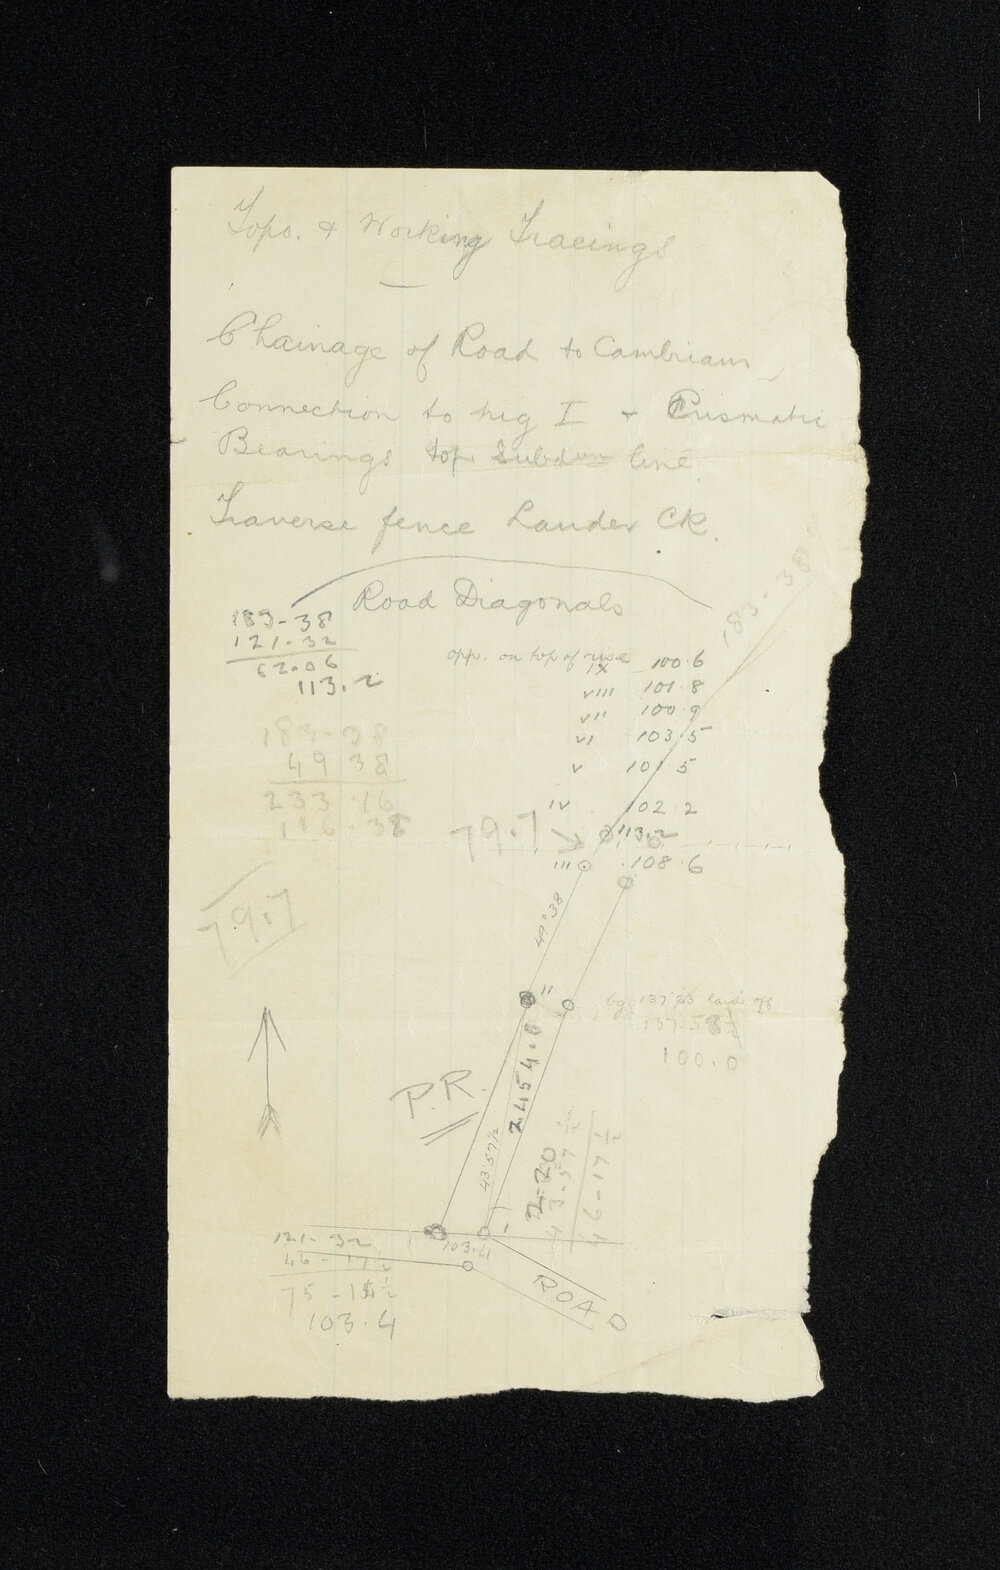 Topo. & Working Tracings
Chainage of Road to Cambrians
Connection to trig I & Prismatic
Bearings top. Subdivn line
Traverse fence Lauder CK.
Road Diagonals
183-38
121-32
62.06
113.2
183-38
49 38
233 16
116.38
183-38
opp. on top of rise
IX 100.6
VIII 101.8
VII 100.9
VI 103.5
V 101.5
IV 102.2
79.7
113.2
III 108.6
79.7
49°38
II
137.58½
100.0
2454.0
P.R.
43.57½
2-20
43-57½
46-17½
I
103.4
121-32
46-17½
75-14½
103.4
ROAD